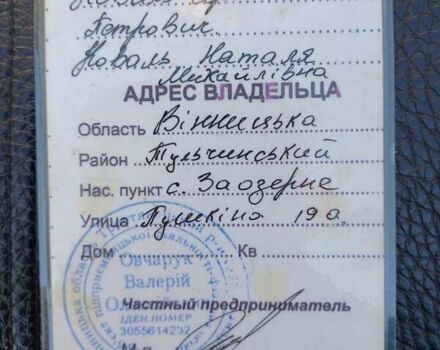 Петрович
Коваль Наталя
Михайлівна
АДРЕС ВЛАДЕЛЬЦА
Область Вінницька
Район Тульчинський
Нас. пункт с. Заозерне
Улица Пушкіна 19а
Дом Кв
Овчарук
Валерій
Частный предприниматель
ІДЕН.НОМЕР
3055614232